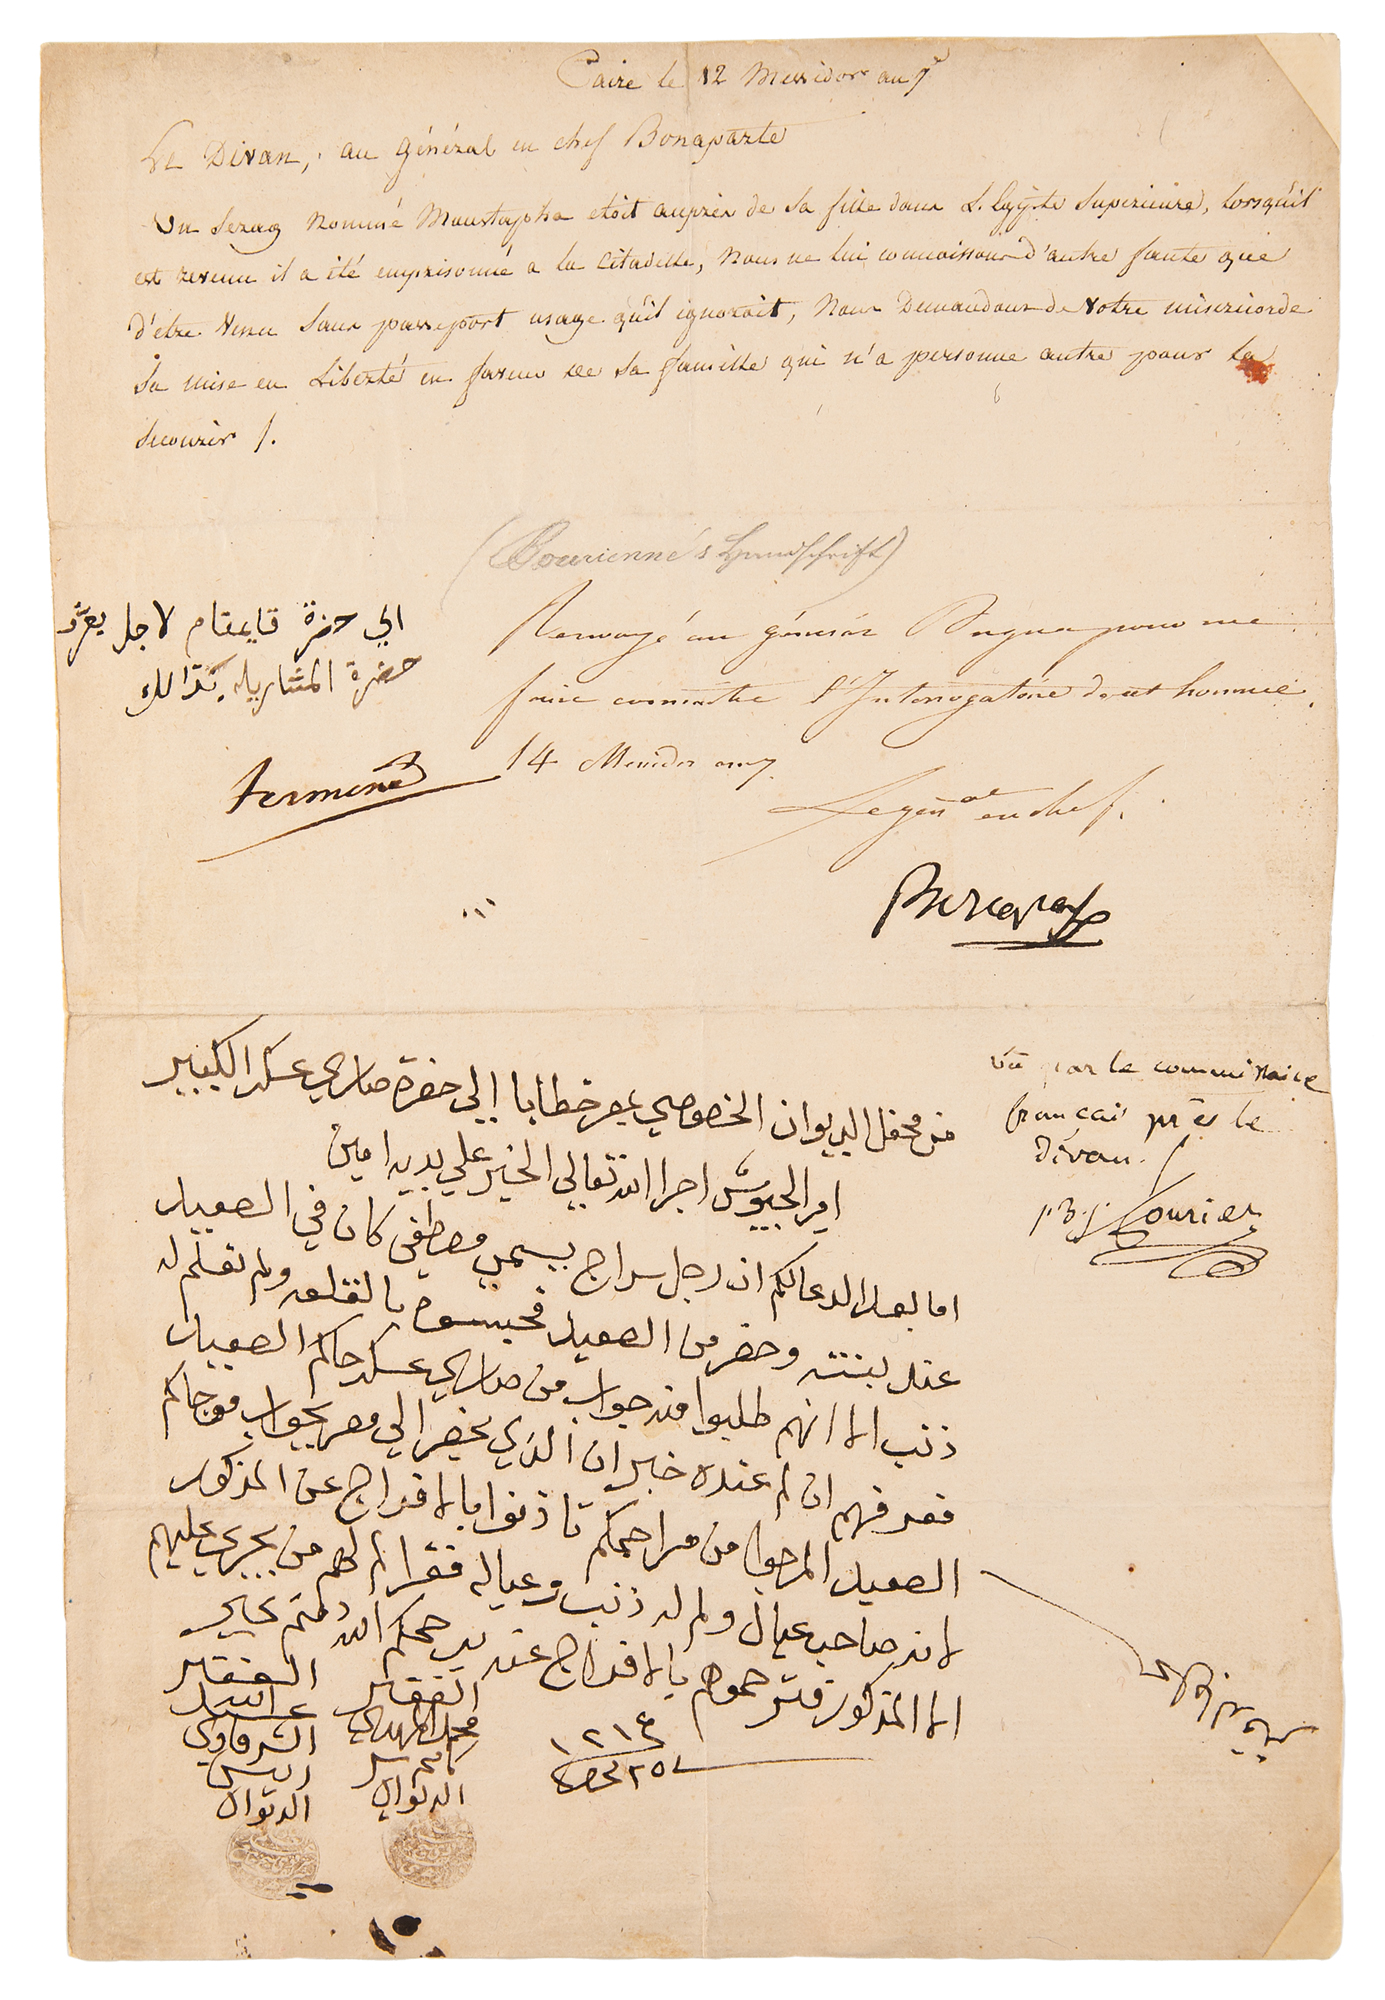 Caire le 12 Messidor an 7e
Le Divan, au Général en chef Bonaparte
Un Serag nommé Moustapha etoit auprès de sa fille dans L. Egypte Superieure, lorsqu'il
est revenu il a été emprisonné a la Citadelle, nous ne lui connoissons d'autre faute que
d'être venu sans passeport usage qu'il ignoroit, Nous Demandons de Votre misericorde
sa mise en Liberté en faveur de sa famille qui n'a personne autre pour la
secourir /.
(Bourienne's Handschrift)
Renvoyé au général Dugua pour me
faire connaitre l'Interrogatoire de cet homme
14 Messidor an 7.
Le génal en chef.
Bonaparte
الي حضرة قايمقام لاجل يعرّف
حضرة المشاراليه بذالك
من محفل الديوان الخصوصي بمصر خطابا إلى حضرة صاري عسكر الكبير
امير الجيوش اجرا الله تعالي الخير علي يديه امين
اما بعد الدعا لكم ان رجل سراج يسمي مصطفي كان في الصعيد
عند بنته وحضر من الصعيد فحبسوه بالقلعه ولم نعلم له
ذنب الا انهم طلبوا منه جواب من صاري عسكر حاكم الصعيد
فعرفهم ان لم عنده خبر ان الذي يحضر الي مصر بجواب من حاكم
الصعيد المرجوا من مراحمكم تاذنوا بالافراج عن المذكور
لانه صاحب عيال ولم له ذنب وعياله فقرا لم لهم من يجري عليهم
الا المذكور فترحموهم بالافراج عنه يرحمكم الله دمتم بخير
١٢١٤
٢٥ محرم
الفقير
محمد المهدي
كاتم سر
الديوان
الفقير
عبد الله
الشرقاوي
رييس
الديوان
Vû par le commissaire
français près le
divan.
J.B.J. Fourier